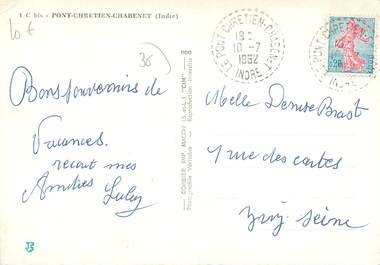 1 C bis - PONT-CHRETIEN-CHABENET (Indre)
10 €
36
Bons souvenirs de
Vacances.
recoit mes
Amitiés Luley
COMBIER IMP. MACON (S.-et-L.) "CIM"
Photographie Véritable - Reproduction Interdite
LE PONT CHRETIEN-CHABENET
18
10-7
1962
INDRE
Melle Denise Brast
1 rue des cartes
Ivry. Seine